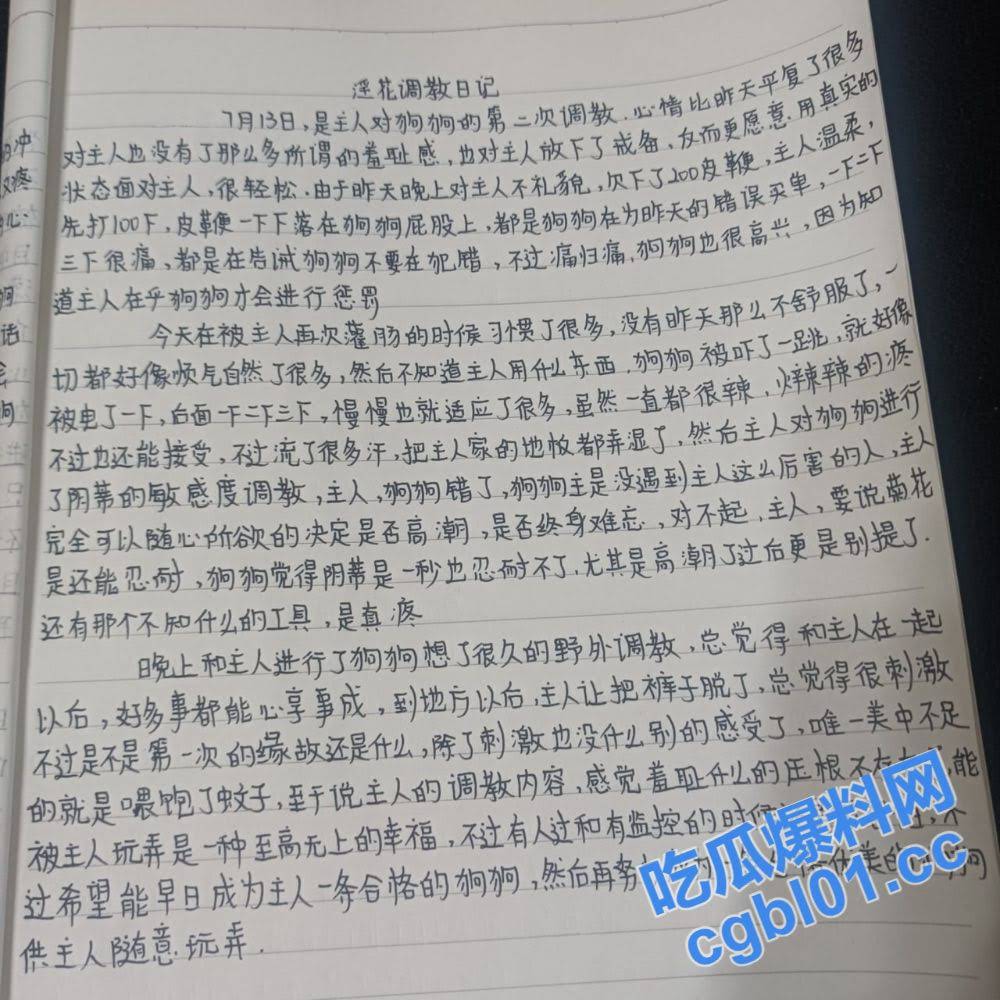 淫花调教日记
7月13日,是主人对狗狗的第二次调教.心情比昨天平复了很多
对主人也没有了那么多所谓的羞耻感,也对主人放下了戒备,反而更愿意用真实的
状态面对主人,很轻松.由于昨天晚上对主人不礼貌,欠下了200皮鞭,主人温柔,
先打100下,皮鞭一下下落在狗狗屁股上,都是狗狗在为昨天的错误买单,一下二下
三下很痛,都是在告诫狗狗不要在犯错,不过痛归痛,狗狗也很高兴,因为知
道主人在乎狗狗才会进行惩罚
今天在被主人再次灌肠的时候习惯了很多,没有昨天那么不舒服了,一
切都好像顺气自然了很多,然后不知道主人用什么东西.狗狗被吓了一跳,就好像
被电了一下,后面一下二下三下,慢慢也就适应了很多,虽然一直都很辣,火辣辣的疼
不过也还能接受,不过流了很多汗,把主人家的地板都弄湿了,然后主人对狗狗进行
了阴蒂的敏感度调教,主人,狗狗错了,狗狗主是没遇到主人这么厉害的人,主人
完全可以随心所欲的决定是否高潮,是否终身难忘,对不起,主人,要说菊花
是还能忍耐,狗狗觉得阴蒂是一秒也忍耐不了,尤其是高潮了过后更是别提了.
还有那个不知什么的工具,是真疼
晚上和主人进行了狗狗想了很久的野外调教,总觉得和主人在一起
以后,好多事都能心享事成,到地方以后,主人让把裤子脱了,总觉得很刺激
不过是不是第一次的缘故还是什么,除了刺激也没什么别的感受了,唯一美中不足
的就是喂饱了蚊子,至于说主人的调教内容,感觉羞耻什么的压根不存在,能
被主人玩弄是一种至高无上的幸福,不过有人过和有监控的时候,不
过希望能早日成为主人一条合格的狗狗,然后再努美的狗
供主人随意玩弄.
吃瓜爆料网
cgbl01.cc